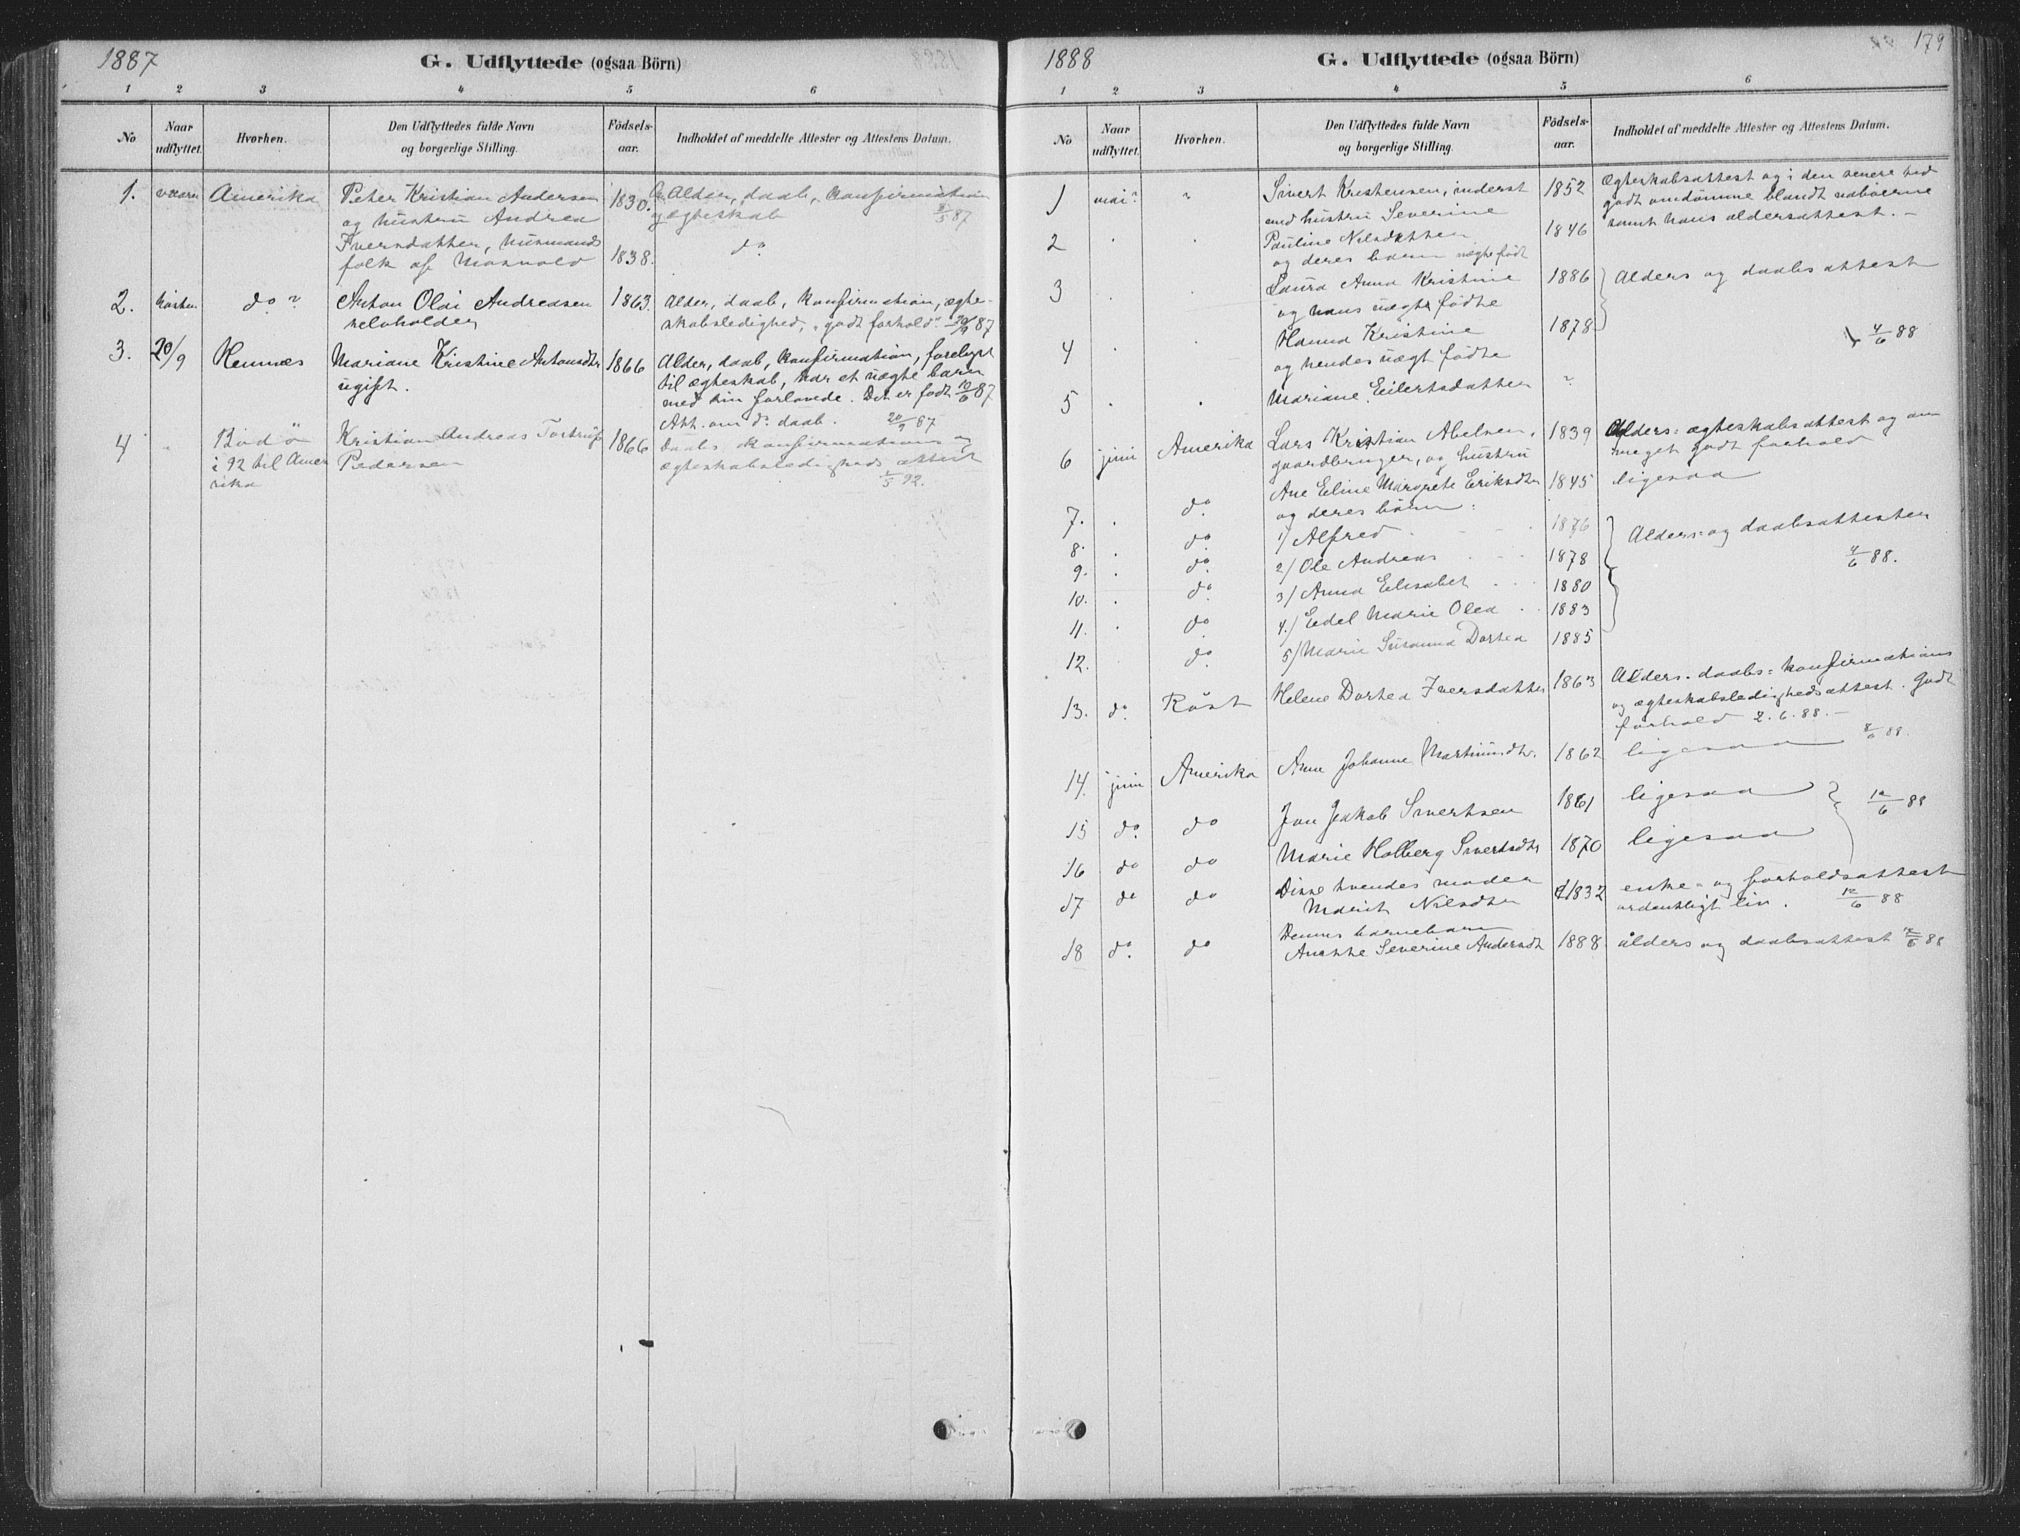 1887
G. Udflyttede (ogsaa Börn)
1 2 3 4 5 6
No
Naar udflyttet.
Hvorhen.
Den Udflyttedes fulde Navn og borgerlige Stilling.
Födsels-aar.
Indholdet af meddelte Attester og Attestens Datum.
1. vaaren Amerika Peter Kristian Andersen 1830. Alder, daab, konfirmation
og hustru Andrea og ægteskab 5 87
Iversdatter, husmands
folk af 1838. do
2. høsten do ? Anton Olai Andreasen 1863. Alder, daab, konfirmation, ægte-
selvholder skabsledighed, "godt forhold" 20/9 87
3. 20/9 Hemnæs Mariane Kristine Antonsdtr 1866 Alder, daab, konfirmation, forelyst
ugift. til ægteskab, har et uægte barn
med sin forlovede. Det er født 10/6 87
Att. om do daab. 20/9 87
4 Bodö Kristian Andreas Pedersen 1866 Daabs konfirmations og
i 92 til Ame ægteskabsledigheds attest
rika 5 92.
1888
G. Udflyttede (ogsaa Börn)
179
1 2 3 4 5 6
No
Naar udflyttet.
Hvorhen.
Den Udflyttedes fulde Navn og borgerlige Stilling.
Födsels-aar.
Indholdet af meddelte Attester og Attestens Datum.
1 mai ? Sivert Kristensen, inderst 1852 Ægteskabsattest og i den senere tid
med hustru Severine godt omdømme blandt naboerne
2 Pauline Nilsdatter 1846 samt hans aldersattest. –
og deres barn ægte født
3 Laura Anna Kristine 1886 Alders og daabsattest
og hans uægte fødte
4 Hanna Kristine 1878 4/6 88
og hendes uægt fødte
5 Mariane Eilertsdatter ?
6 juni Amerika Lars Kristian Abelsen, 1839 Alders= ægteskabsattest og om
gaardbruger, og hustru meget godt forhold
Ane Eline Margrete Eriksdtr 1845 ligesaa
7. do og deres børn:
1/ Alfred 1876 Alders= og daabsattester
8. do 2/ Ole Andreas 1878 4/6 88.
9. do 3/ Anna Elisabet 1880
10. do 4/ Edel Marie Olea 1883
11. do 5/ Marie Susanna Dortea 1885
12. do
13. do Röst Helene Dortea Iversdatter 1863 Alders= daabs= konfirmations
og ægteskabsledighedsattest. Godt
forhold 2.6.88. –
14. juni Amerika Anne Johanne Martinusdtr. 1862 ligesaa 8/6 88.
15 do. do Jon Jakob Sivertsen 1861 ligesaa 12/6 88
16 do do Marie Holberg Sivertsdtr 1870 ligesaa
17 do do Disse tvendes moder 1832 enke= og forholdsattest
Marit Nilsdtr ordentligt liv. 12/6 88
18 do. do Dennes barnebarn
Anette Severine Andersdt 1888 alders og daabsattest 12/6 88